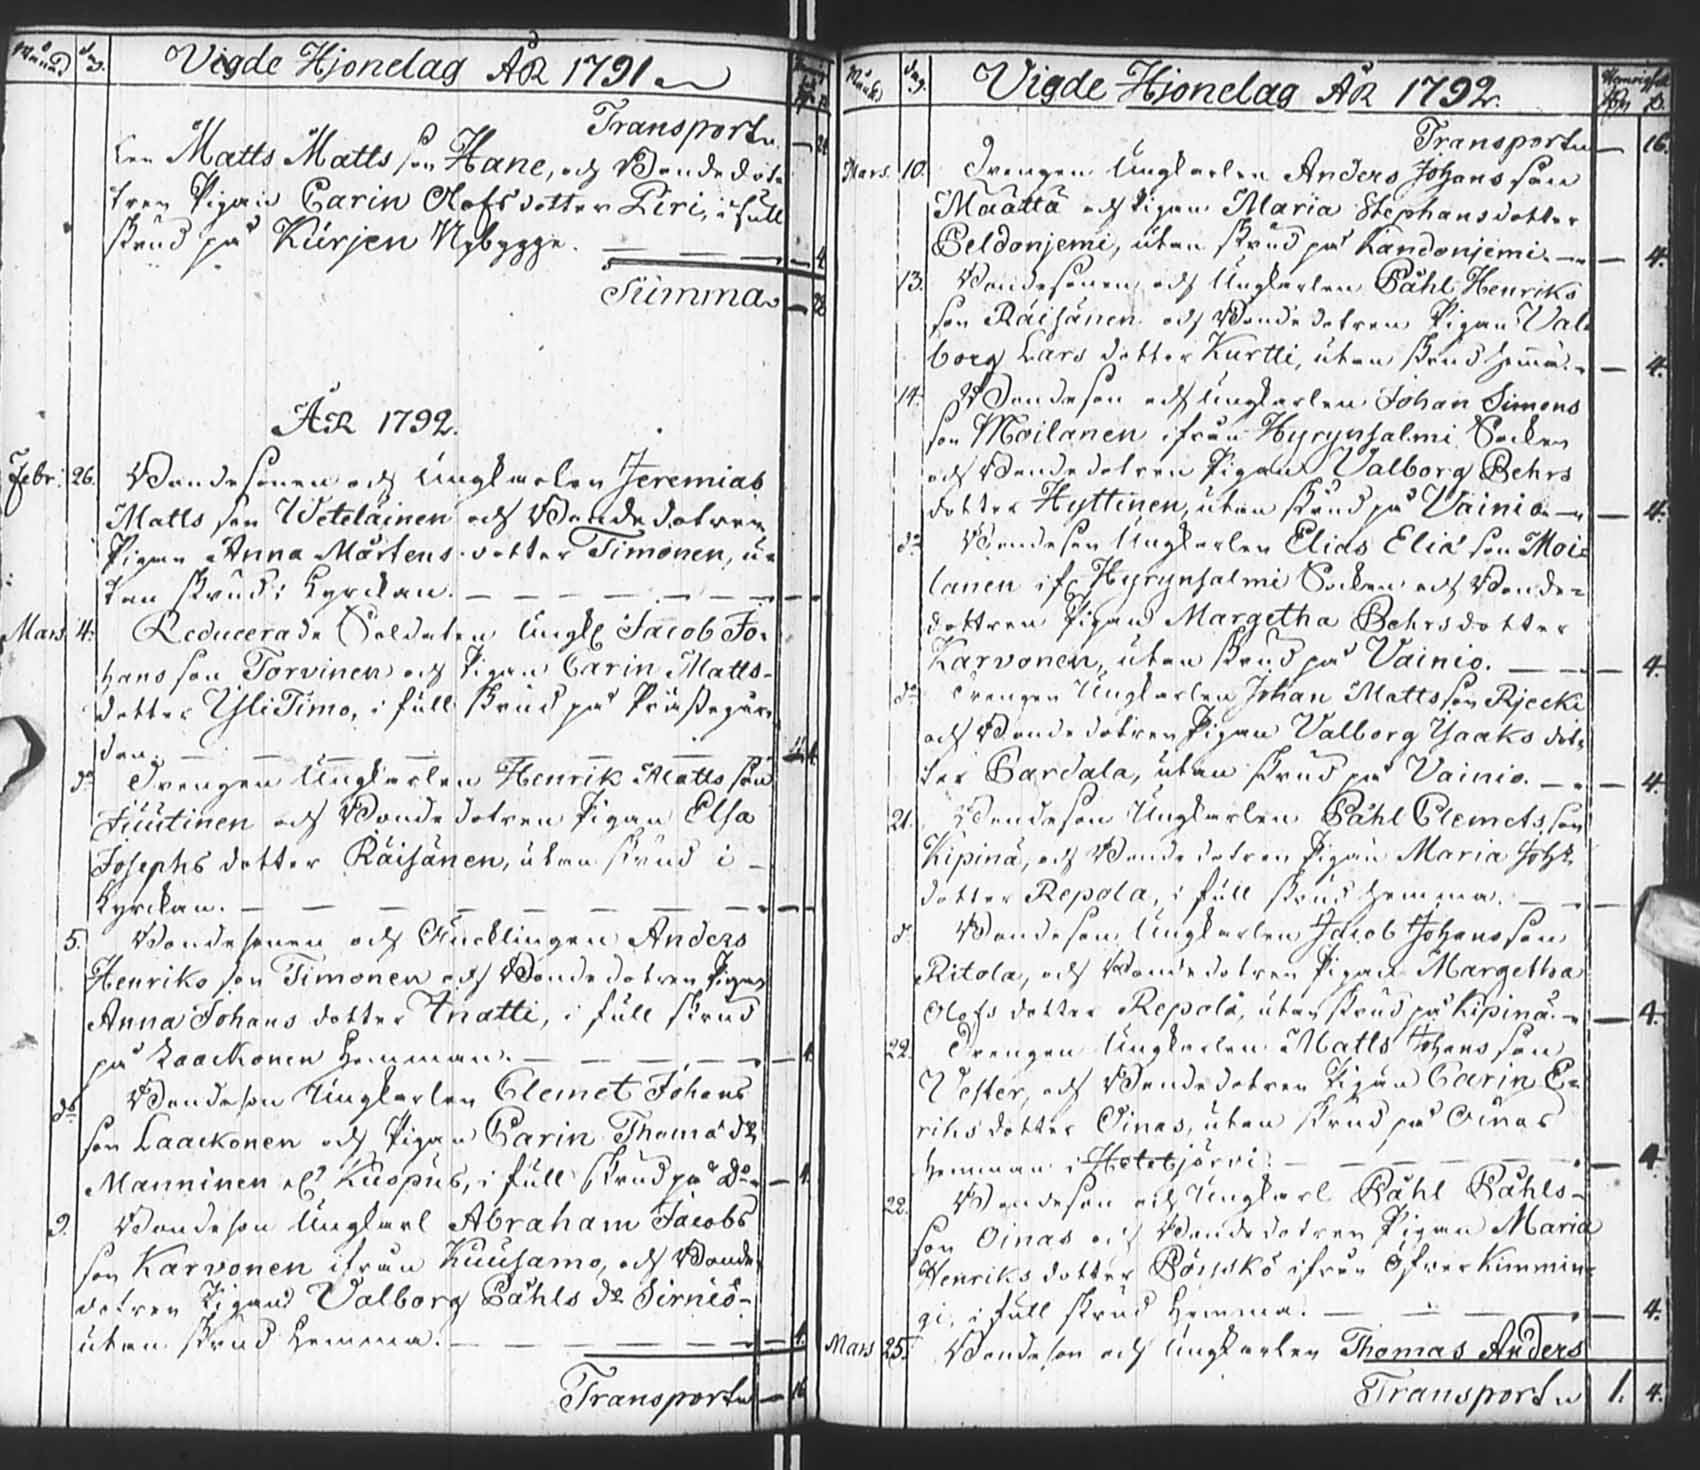 Månad
Dag.
Vigde Hjonelag ÅR 1791
Transport — 24
len Matts Mattsson Hane, och Bondedot-
tren Pigan Carin Olofsdotter Piri, i full
skrud på Kurjen Nybygge. — — 4
Summa — 28
ÅR 1792.
Febr: 26. Bondesonen och Ungkarlen Jeremias
Mattsson Weteläinen och Bondedotren
Pigan Anna Mårtensdotter Timonen, u-
tan skrud i Kyrckan. — — — — — —
Mars 4. Reducerade Soldaten Ungk. Jacob Jo-
hansson Torvinen och Pigan Carin Matts-
dotter YliTimo, i full skrud på Prästegår-
den. — — — — — 4
do Drengen Ungkarlen Henrik Mattsson
Juutinen och Bondedotren Pigan Elsa
Josephsdotter Räisänen, utan skrud i
Kyrckan. — — — — — — —
5. Bondesonen och Encklingen Anders
Henriksson Timonen och Bondedotren Pigan
Anna Johansdotter Anatti, i full skrud
på Laackonen Hemman. — — — — 4
do Bondeson Ungkarlen Clemet Johans
son Laackonen och Pigan Carin Thomæ dr
Manninen elr Kuopus, i full skrud på do — 4
9. Bondeson Ungkarl Abraham Jacobs
son Karvonen ifrån Kuusamo, och Bonde-
dotren Pigan Valborg Påhls dr Sirniö
utan skrud hemma. — — — — — 4.
Transport — 16
Månad
Dag.
Vigde Hjonelag ÅR 1792.
Transport — 16.
Mars. 10. Drengen Ungkarlen Anders Johansson
Määttä och Pigan Maria Stephansdotter
Peldonjemi, utan skrud på Kandonjemi. — 4.
13. Bondesonen och Ungkarlen Påhl Henriks
son Räisänen och Bondedotren Pigan Val-
borg Larsdotter Kurtti, utan skrud hemma. — 4.
14. Bondeson och Ungkarlen Johan Simons
son Moilanen ifrån Hyrynsalmi Socken
och Bondedotren Pigan Valborg Pehrs
dotter Hyttinen, utan skrud på Vainio. — 4.
do Bondeson Ungkarlen Elias Eliæ son Moi-
lanen ifr Hyrynsalmi Socken och Bonde-
dottren Pigan Margetha Pehrsdotter
Karvonen, utan skrud på Vainio. — — 4.
do Drengen Ungkarlen Johan Mattsson Rjecki
och Bondedotren Pigan Valborg Ysaaks dot-
ter Pardala, utan skrud på Vainio. — — 4.
21. Bondeson Ungkarlen Påhl Clemetsson
Kipinä, och Bondedotren Pigan Maria Joh:
dotter Repola, i full skrud hemma. — —
do Bondeson Ungkarlen Jacob Johansson
Ritola, och Bondedotren Pigan Margetha
Olofsdotter Repola, utan skrud på Kipinä. — 4.
22. Drengen Ungkarlen Matts Johansson
Vester, och Bondedotren Pigan Carin E-
riksdotter Oinas, utan skrud på Oinas
Hemman i Hetejärvi. — — — — — 4
22. Bondeson och Ungkarl Påhl Påhls-
son Oinas och Bondedotren Pigan Maria
Henriksdotter ifrån Öfver Kimmin-
gi, i full skrud hemma. — — — — 4.
Mars 25. Bondeson och Ungkarlen Thomas Anders
Transport 1. 4.